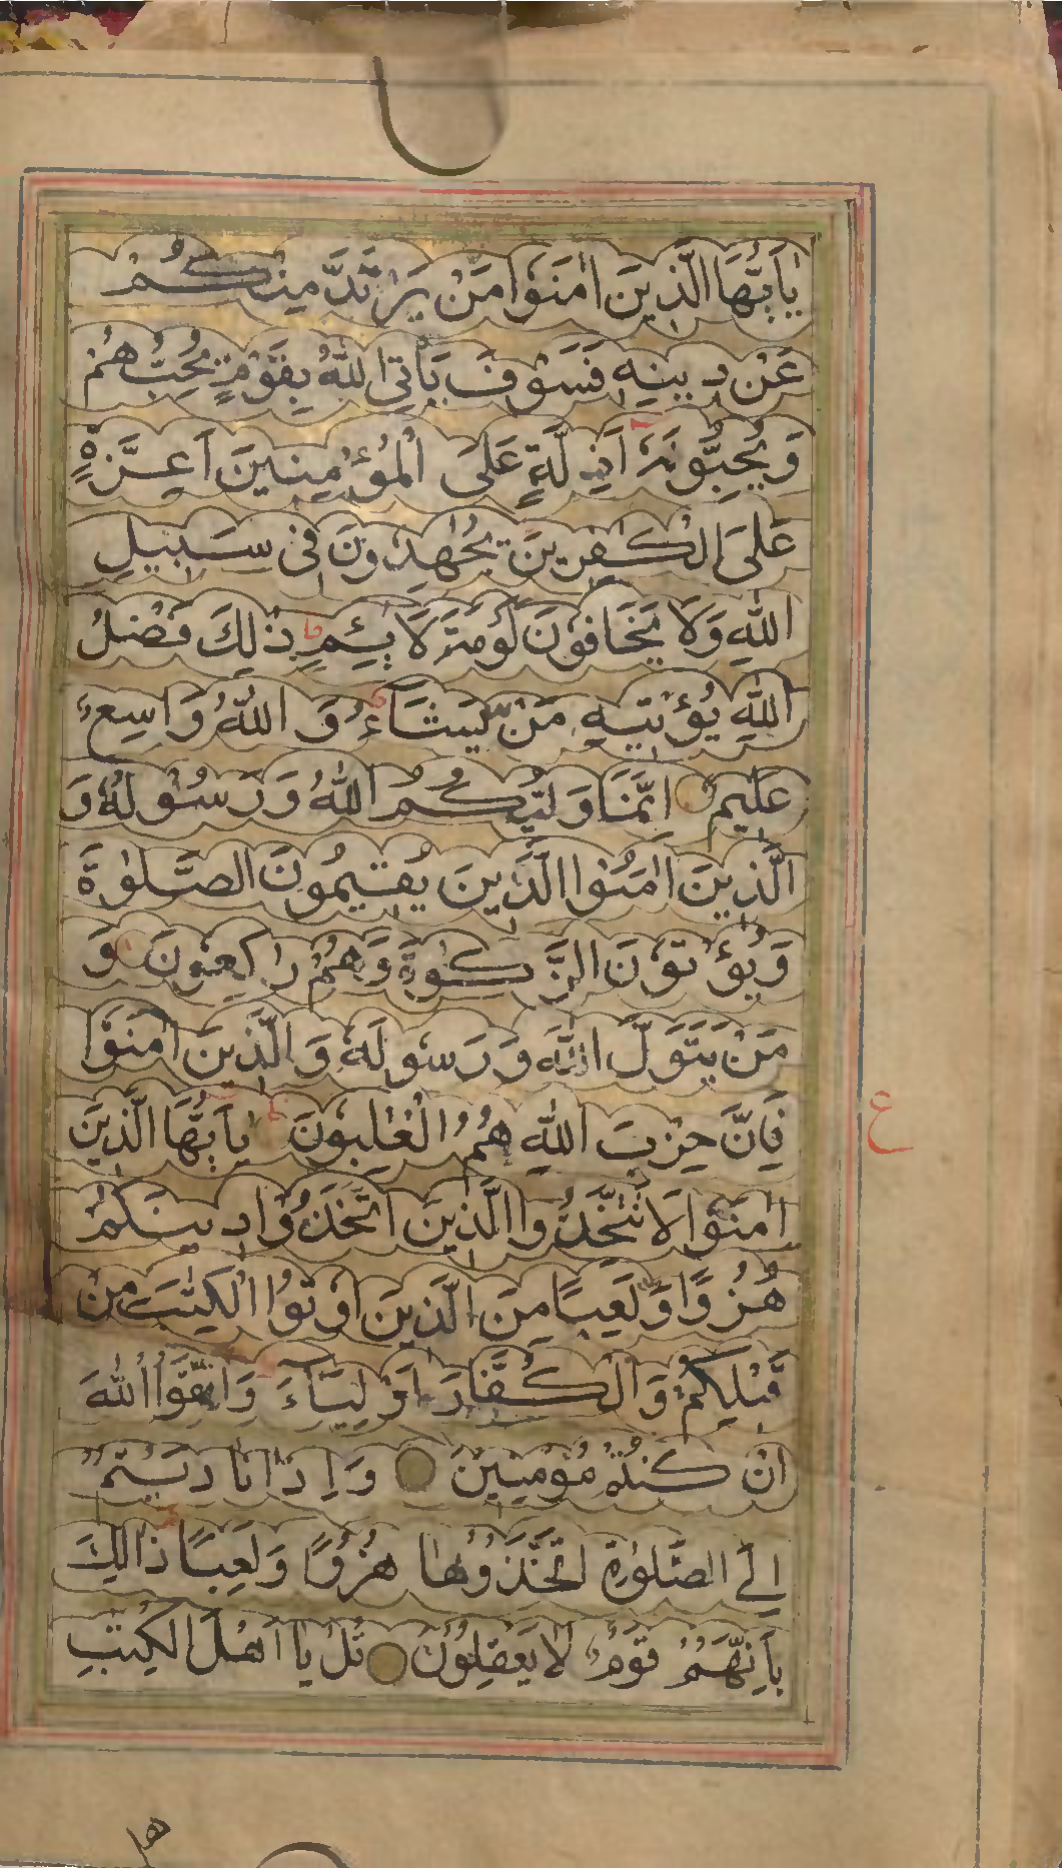 يٰاَيُّهَا الَّذِينَ اٰمَنَوْا مَنْ يَرْتَدَّ مِنْكُمْ
عَنْ دِينِهِ فَسَوْفَ يَأْتِى اللّٰهُ بِقَوْمٍ يُحِبُّهُمْ
وَيُحِبُّونَهٗ اَذِلَّةٍ عَلَى الْمُؤْمِنِينَ اَعِزَّةٍ
عَلَى الْكٰفِرِينَ يُجٰهِدُونَ فِى سَبِيلِ
اللّٰهِ وَلَا يَخَافُونَ لَوْمَةَ لَائِمٍ ذٰلِكَ فَضْلُ
اللّٰهِ يُؤْتِيهِ مَنْ يَّشَاءُ وَ اللّٰهُ وَاسِعٌ
عَلِيمٌ اِنَّمَا وَلِيُّكُمُ اللّٰهُ وَرَسُوْلُهٗ وَ
الَّذِينَ اٰمَنُوا الَّذِينَ يُقِيمُونَ الصَّلٰوةَ
وَيُؤْتُوْنَ الزَّكٰوةَ وَهُمْ رَاكِعُونَ وَ
مَنْ يَتَوَلَّ اللّٰهَ وَرَسُولَهٗ وَالَّذِينَ اٰمَنُوْا
فَاِنَّ حِزْبَ اللّٰهِ هُمُ الْغٰلِبُونَ يٰاَيُّهَا الَّذِينَ
اٰمَنُوْا لَا تَتَّخِذُوا الَّذِينَ اتَّخَذُوْا دِينَكُمْ
هُزُوًا وَّلَعِبًا مِنَ الَّذِينَ اُوْتُوا الْكِتٰبَ مِنْ
قَبْلِكُمْ وَالْكُفَّارَ اَوْلِيَاءَ وَاتَّقُوا اللّٰهَ
اِنْ كُنْتُمْ مُؤْمِنِينَ وَاِذَا نَادَيْتُمْ
اِلَى الصَّلٰوةِ اتَّخَذُوْهَا هُزُوًا وَلَعِبًا ذَالِكَ
بِاَنَّهُمْ قَوْمٌ لَا يَعْقِلُوْنَ قُلْ يَا اَهْلَ الْكِتٰبِ
ع